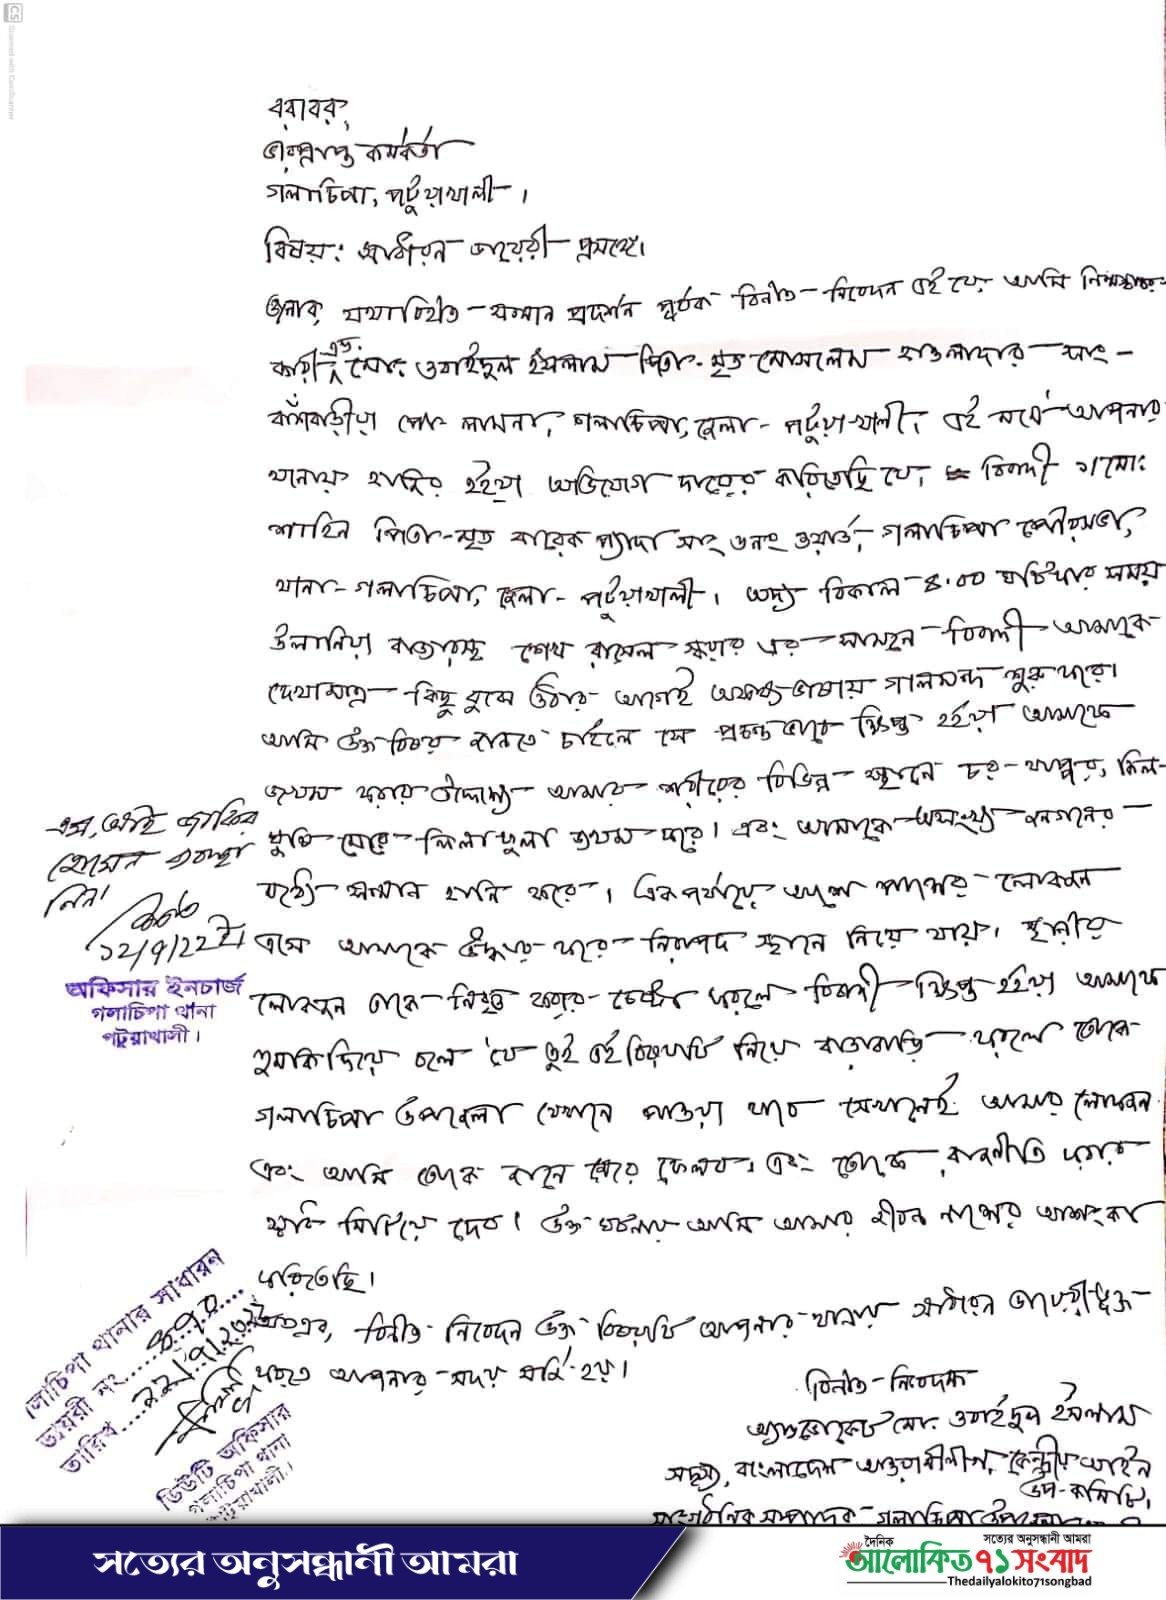 CS Scanned with CamScanner
বরাবর,
ভারপ্রাপ্ত কর্মকর্তা
গলাচিপা, পটুয়াখালী।
বিষয়: সাধারন ডায়েরী প্রসঙ্গে।
জনাব, যথাবিহীত সম্মান প্রদর্শন পূর্বক বিনীত নিবেদন এই যে, আমি নিম্নস্বাক্ষর-
কারী এড. মো. ওবাইদুল ইসলাম পিতা-মৃত মোসলেম হাওলাদার সাং-
বাঁশবাড়ীয়া পো: লামনা, গলাচিপা, জেলা- পটুয়াখালী, এই মর্মে আপনার
থানায় হাজির হইয়া অভিযোগ দায়ের করিতেছি যে, বিবাদী ১। মো:
শাহিন পিতা-মৃত বারেক প্যাদা সাং ৬নং ওয়ার্ড, গলাচিপা পৌরসভা,
থানা-গলাচিপা, জেলা- পটুয়াখালী। অদ্য বিকাল ৪.০০ ঘটিকার সময়
উলানিয়া বাজারস্থ শেখ রাসেল স্কয়ার এর সামনে বিবাদী আমাকে
দেখামাত্র কিছু বুঝে উঠার আগেই অকথ্য ভাষায় গালমন্দ শুরু করে।
আমি উক্ত বিষয় জানতে চাইলে সে প্রচন্ড ভাবে ক্ষিপ্ত হইয়া আমাকে
জখম করার উদ্দেশ্যে আমার শরীরের বিভিন্ন স্থানে চর-থাপ্পর, কিল-
ঘুষি মেরে লিলাফুলা জখম করে। এবং আমাকে অসংখ্য জনগনের
মধ্যে সম্মান হানি করে। একপর্যায়ে আশে পাশের লোকজন
এসে আমাকে উদ্ধার করে নিরাপদ স্থানে নিয়ে যায়। স্থানীয়
লোকজন তাকে নিবৃত্ত করার চেষ্টা করলে বিবাদী ক্ষিপ্ত হইয়া আমাকে
হুমকি দিয়ে বলে যে তুই এই বিষয়টি নিয়ে বাড়াবাড়ি করলে তোকে
গলাচিপা উপজেলা যেখানে পাওয়া যাবে সেখানেই আমার লোকজন
এবং আমি তোকে জানে মেরে ফেলব, এবং তোকে রাজনীতি করার
স্বাদ মিটিয়ে দেব। উক্ত ঘটনায় আমি আমার জীবন নাশের আশংকা
করিতেছি।
অতএব, বিনীত নিবেদন উক্ত বিষয়টি আপনার থানায় সাধারন ডায়েরী ভুক্ত
করতে আপনার সদয় মর্জি হয়।
বিনীত নিবেদক
অ্যাডভোকেট মো. ওবাইদুল ইসলাম
সদস্য, বাংলাদেশ আওয়ামীলীগ, কেন্দ্রীয় আইন
উপ-কমিটি,
সাংগঠনিক সম্পাদক- গলাচিপা উপজেলা
এস, আই জাকির
হোসেন ব্যবস্থা
নিন।
অফিসার ইনচার্জ
গলাচিপা থানা
পটুয়াখালী।
গলাচিপা থানার সাধারন
ডায়রী নং
তারিখ
ডিউটি অফিসার
গলাচিপা থানা
পটুয়াখালী।
সত্যের অনুসন্ধানী আমরা
দৈনিক
সত্যের অনুসন্ধানী আমরা
আলোকিত ৭১ সংবাদ
Thedailyalokito71songbad